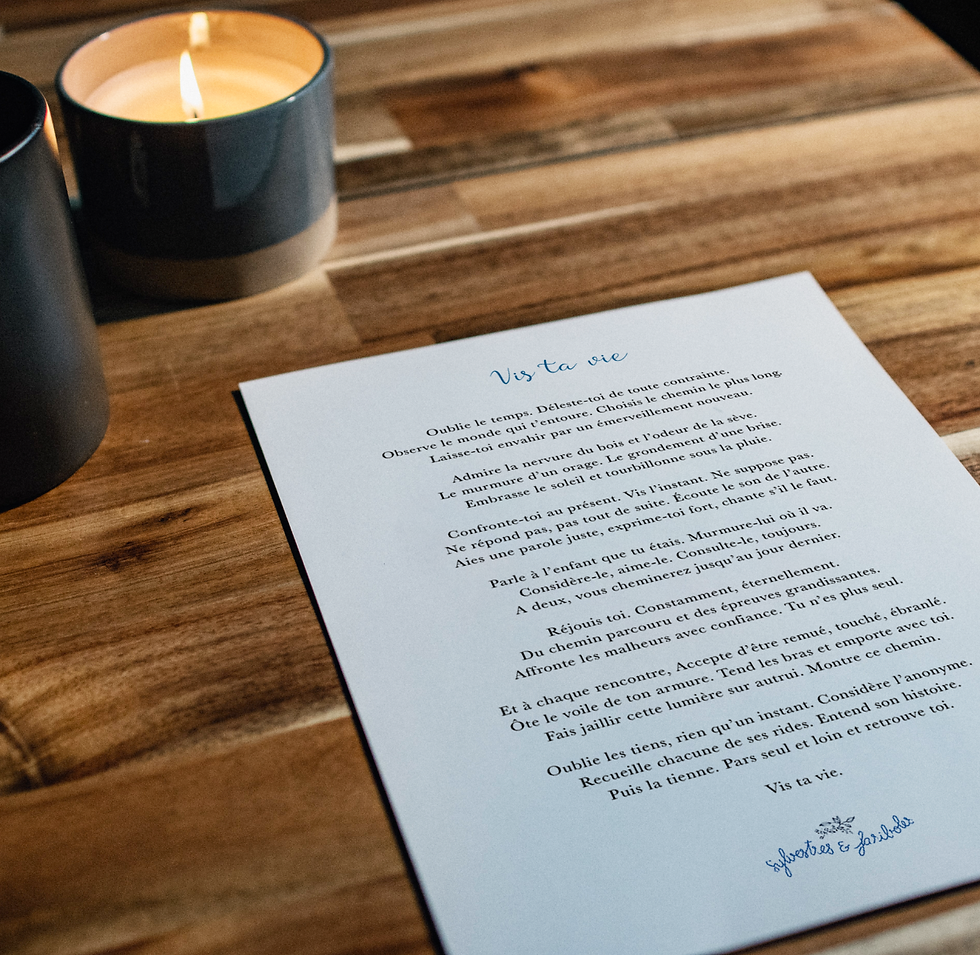 Vis ta vie
Oublie le temps. Déleste-toi de toute contrainte.
Observe le monde qui t'entoure. Choisis le chemin le plus long.
Laisse-toi envahir par un émerveillement nouveau.
Admire la nervure du bois et l'odeur de la sève.
Le murmure d'un orage. Le grondement d'une brise.
Embrasse le soleil et tourbillonne sous la pluie.
Confronte-toi au présent. Vis l'instant. Ne suppose pas.
Ne répond pas, pas tout de suite. Écoute le son de l'autre.
Aies une parole juste, exprime-toi fort, chante s'il le faut.
Parle à l'enfant que tu étais. Murmure-lui où il va.
Considère-le, aime-le. Consulte-le, toujours.
A deux, vous cheminerez jusqu'au jour dernier.
Réjouis toi. Constamment, éternellement.
Du chemin parcouru et des épreuves grandissantes.
Affronte les malheurs avec confiance. Tu n'es plus seul.
Et à chaque rencontre, Accepte d'être remué, touché, ébranlé.
Ôte le voile de ton armure. Tend les bras et emporte avec toi.
Fais jaillir cette lumière sur autrui. Montre ce chemin.
Oublie les tiens, rien qu'un instant. Considère l'anonyme.
Recueille chacune de ses rides. Entend son histoire.
Puis la tienne. Pars seul et loin et retrouve toi.
Vis ta vie.
Sylvestres & fariboles